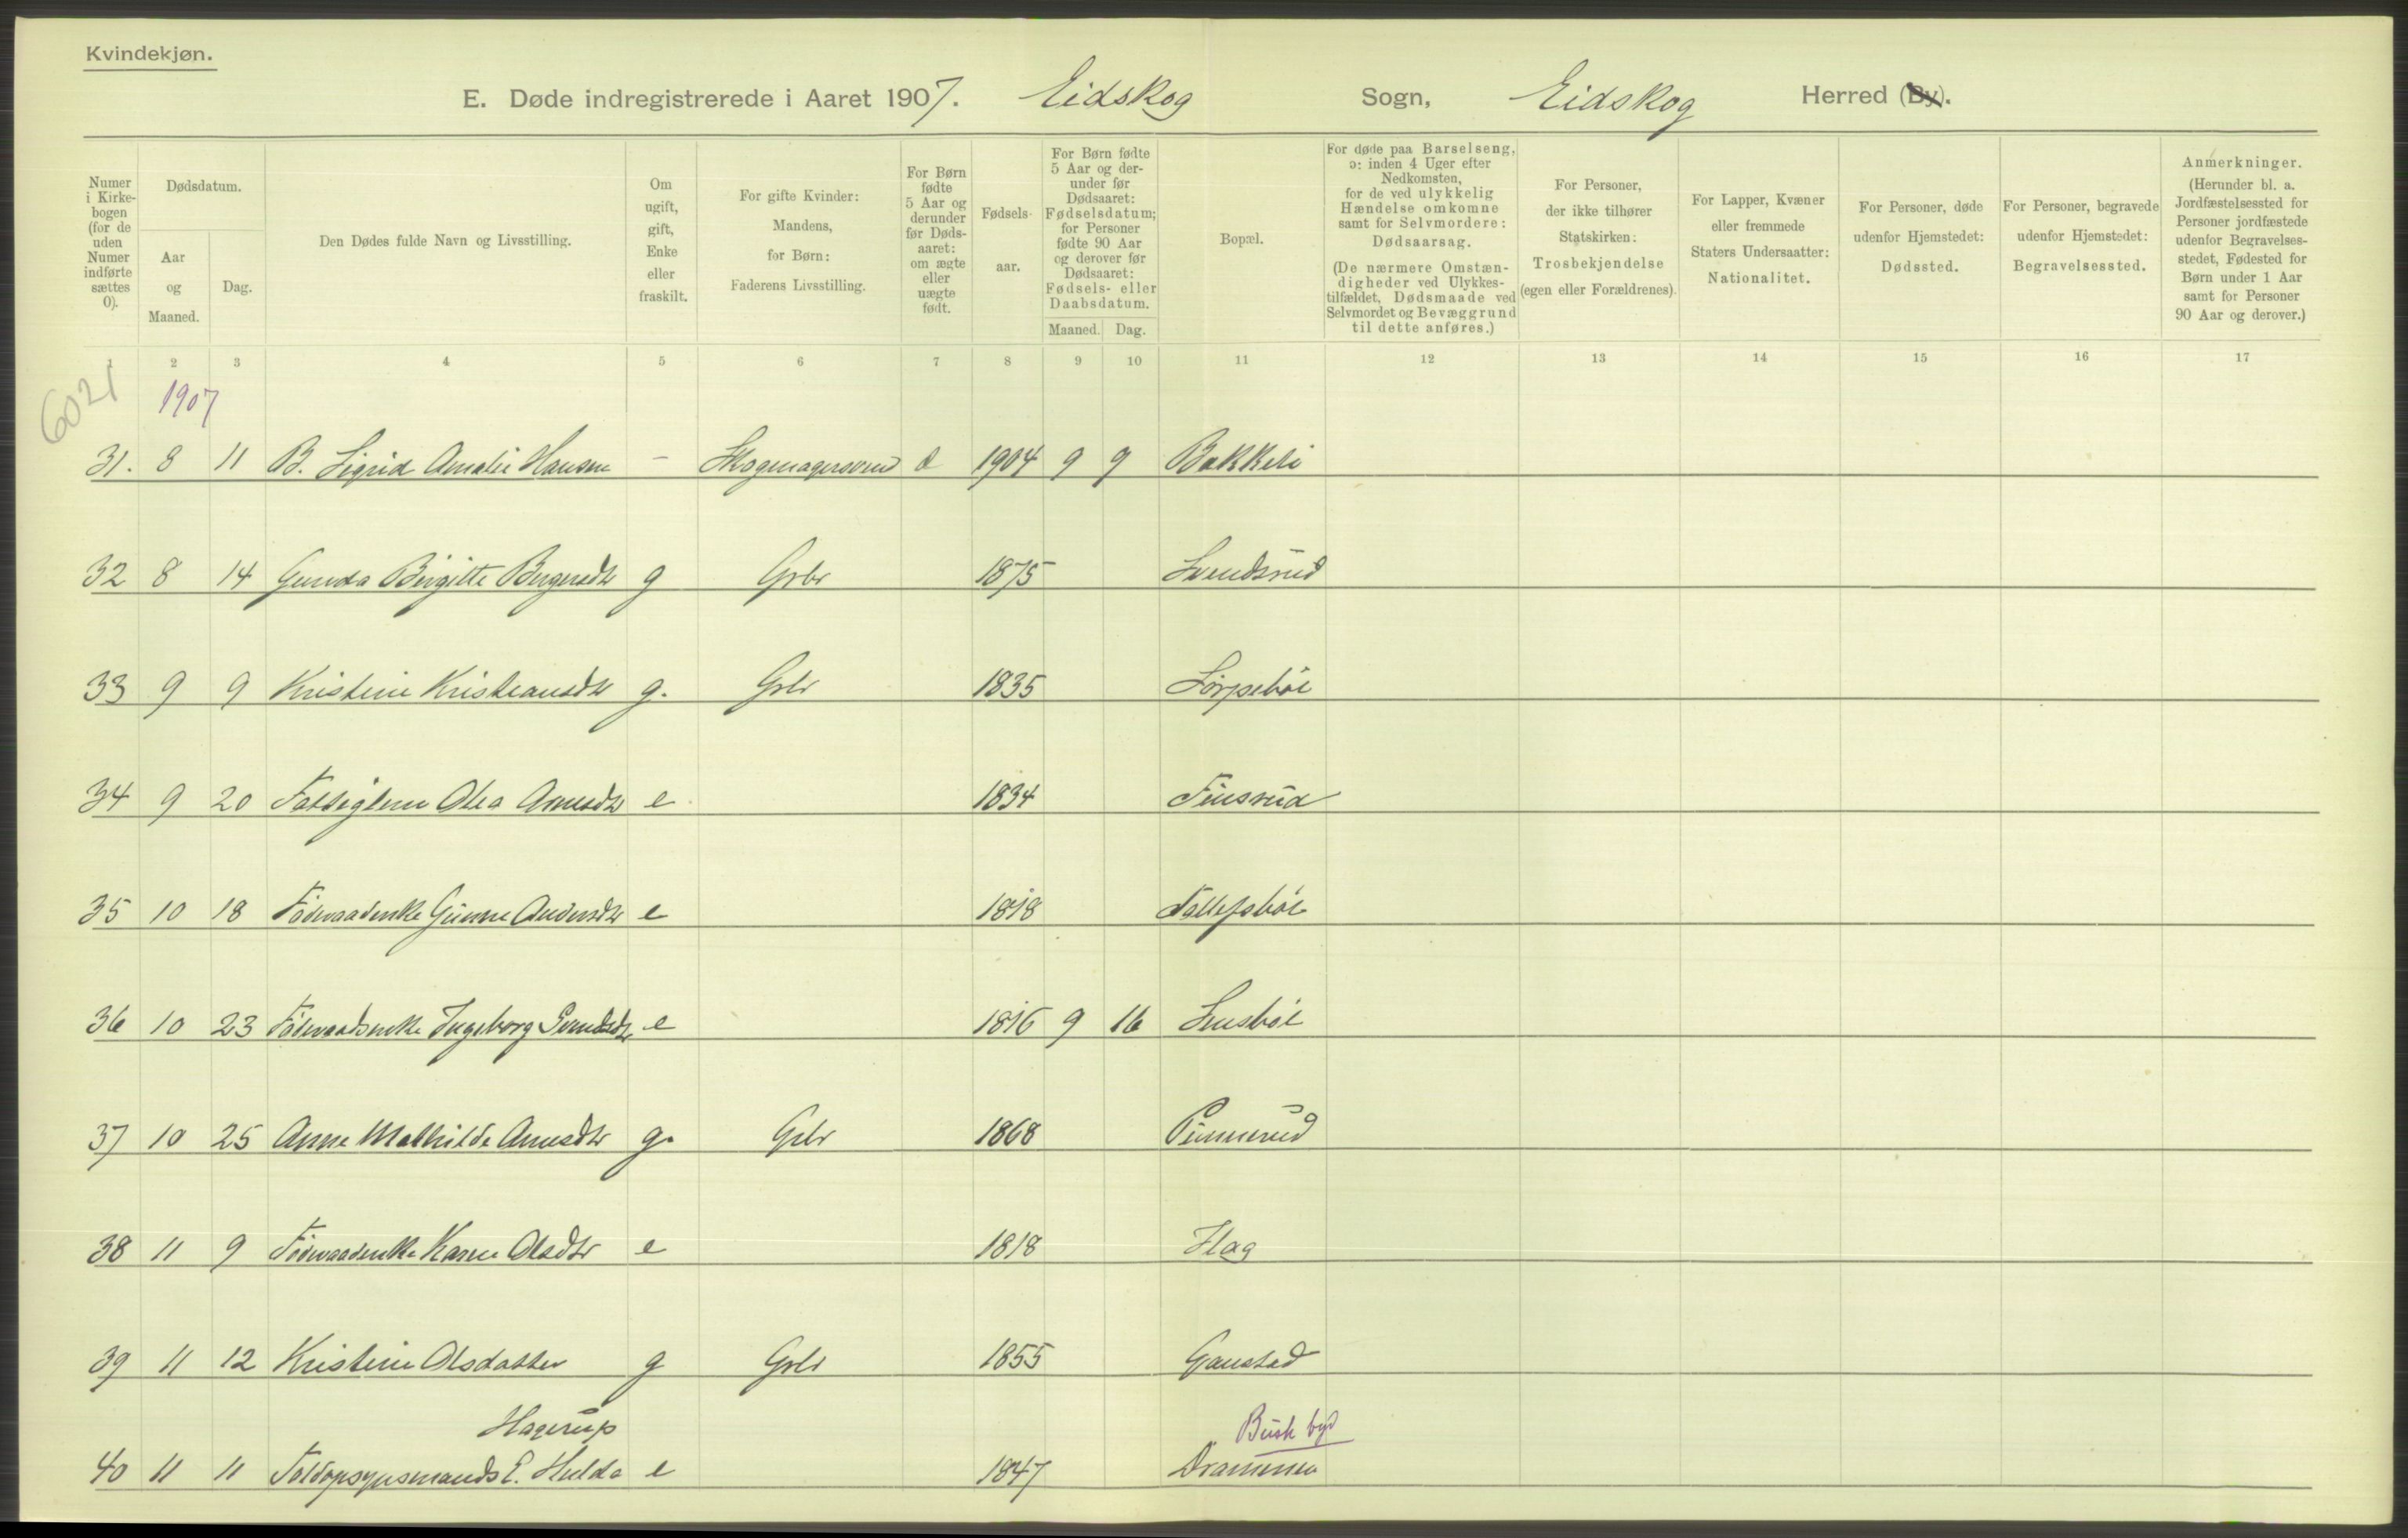 Kvindekjøn.
E. Døde indregistrerede i Aaret 1907. Eidskog Sogn, Eidskog Herred (By).
Numer i Kirkebogen (for de uden Numer indførte sættes 0).
Dødsdatum.
Aar og Maaned.
Dag.
Den Dødes fulde Navn og Livsstilling.
Om ugift, gift, Enke eller fraskilt.
For gifte Kvinder: Mandens, for Børn: Faderens Livsstilling.
For Børn fødte 5 Aar og derunder før Dødsaaret: om ægte eller uægte født.
Fødselsaar.
For Børn fødte 5 Aar og derunder før Dødsaaret: Fødselsdatum; for Personer fødte 90 Aar og derover før Dødsaaret: Fødsels- eller Daabsdatum.
Maaned. Dag.
Bopæl.
For døde paa Barselseng, ɔ: inden 4 Uger efter Nedkomsten, for de ved ulykkelig Hændelse omkomne samt for Selvmordere: Dødsaarsag. (De nærmere Omstændigheder ved Ulykkestilfældet, Dødsmaade ved Selvmordet og Bevæggrund til dette anføres.)
For Personer, der ikke tilhører Statskirken: Trosbekjendelse (egen eller Forældrenes).
For Lapper, Kvæner eller fremmede Staters Undersaatter: Nationalitet.
For Personer, døde udenfor Hjemstedet: Dødssted.
For Personer, begravede udenfor Hjemstedet: Begravelsessted.
Anmerkninger. (Herunder bl. a. Jordfæstelsessted for Personer jordfæstede udenfor Begravelsesstedet, Fødested for Børn under 1 Aar samt for Personer 90 Aar og derover.)
1 2 3 4 5 6 7 8 9 10 11 12 13 14 15 16 17
6021 1907
31. 8 11 B. Sigrid Amalie Hansen – Skogmagersvend 1904 9 9 Bakkeli
32 8 14 Gunda Birgitte g Grbr 1875 Svendsrud
33 9 9 Kristine Kristiansdtr g. Gslr 1835
34 9 20 Fattiglem Olea Arnesdtr e 1834 Finsrud
35 10 18 Föderaadsenke Gunne Andersdtr e 1818
36 10 23 Föderaadsenke Ingeborg e 1816 9 16
37 10 25 Anne Mathilde Arnesdtr g. Gslr 1868
38 11 9 Föderaadsenke Karen Olsdtr e 1818
39 11 12 Kristine Olsdatter g Gslr 1855 Gaustad
Hagerup Busk byd
40 11 11 Toldopsynsmands E. Hulda e 1847 Drammen